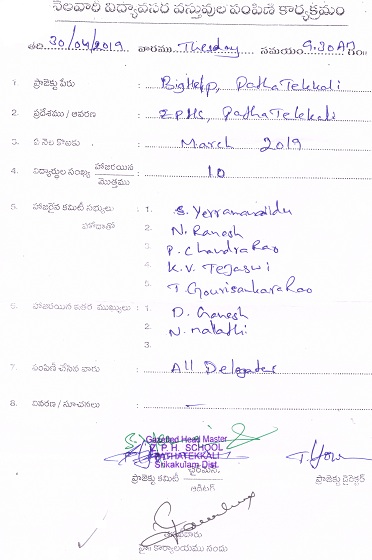 నెలవారీ విద్యావసర వస్తువుల పంపిణీ కార్యక్రమం
తేది. 30/04/2019 వారము Thesday సమయం 9.30AM గం॥
1. ప్రాజెక్టు పేరు : BigHelp, PathaTekkali
2. ప్రదేశము / ఆవరణ : Z.P.H.S, PathaTekkali
3. ఏ నెల కొరకు : March 2019
4. విద్యార్థుల సంఖ్య హాజరయిన / మొత్తము : 10
5. హాజరైన కమిటీ సభ్యులు : 1. S. Yerramnaidu
హోదాతో 2. N. Ramesh
3. P. Chandra Rao
4. K.V. Tejaswi
5. T Gourisankara Rao
6. హాజరయిన ఇతర ముఖ్యులు : 1. D. Ganesh
2. N. Malathi
3.
7. పంపిణీ చేసిన వారు : All Delegates
8. వివరణ / సూచనలు : —
Gazetted Head Master
Z. P. H. SCHOOL
PATHATEKKALI
Srikakulam Dist.
ప్రాజెక్టు కమిటీ చైర్మన్ ప్రాజెక్టు డైరెక్టర్
ఆడిటర్